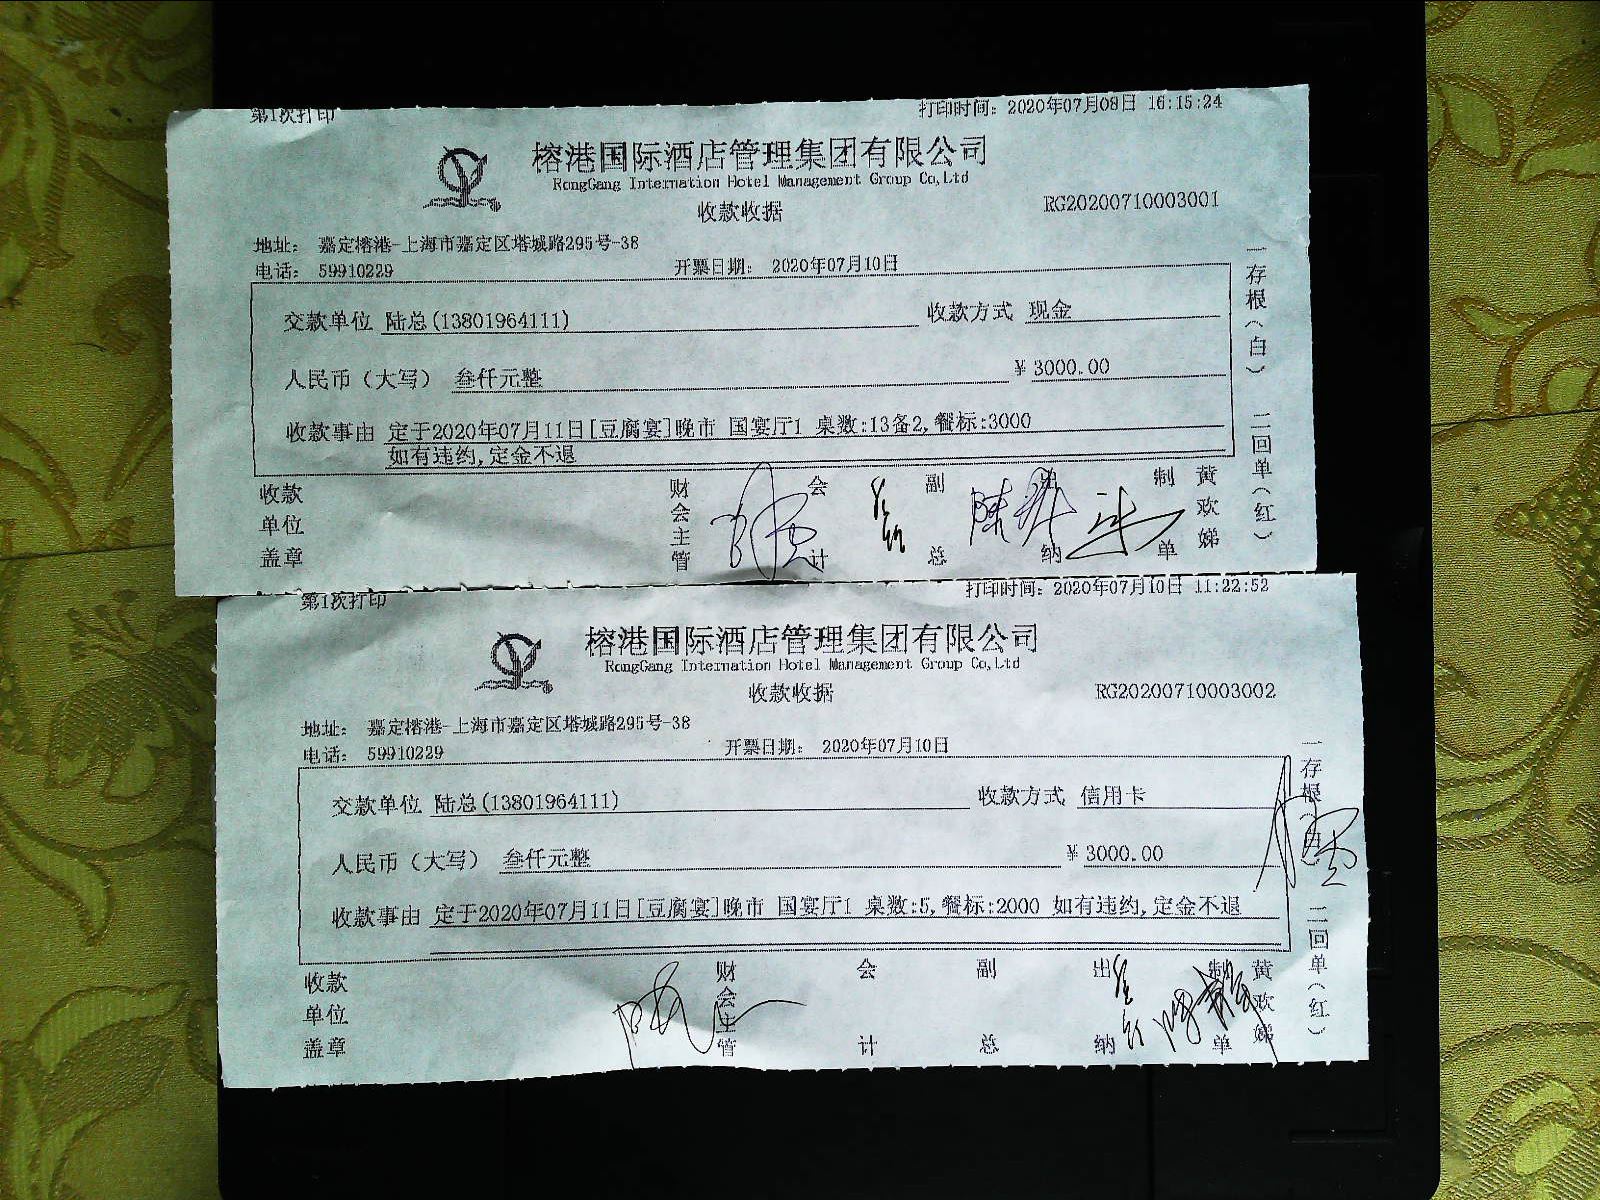 第1次打印
打印时间：2020年07月08日 16:15:24
榕港国际酒店管理集团有限公司
RongGang Internation Hotel Management Group Co,Ltd
收款收据
RG20200710003001
地址：嘉定榕港-上海市嘉定区塔城路295号-38
电话：59910229
开票日期：2020年07月10日
交款单位 陆总(13801964111)
收款方式 现金
人民币（大写） 叁仟元整
￥3000.00
收款事由 定于2020年07月11日[豆腐宴]晚市 国宴厅1 桌数:13备2,餐标:3000
如有违约,定金不退
收款单位盖章
财会主管
会计
副总
纳
制单
黄欢娣
一存根（白） 二回单（红）
第1次打印
打印时间：2020年07月10日 11:22:52
榕港国际酒店管理集团有限公司
RongGang Internation Hotel Management Group Co,Ltd
收款收据
RG20200710003002
地址：嘉定榕港-上海市嘉定区塔城路295号-38
电话：59910229
开票日期：2020年07月10日
交款单位 陆总(13801964111)
收款方式 信用卡
人民币（大写） 叁仟元整
￥3000.00
收款事由 定于2020年07月11日[豆腐宴]晚市 国宴厅1 桌数:5,餐标:2000 如有违约,定金不退
收款单位盖章
财会主管
会计
副总
出纳
制单
黄欢娣
一存根（白） 二回单（红）